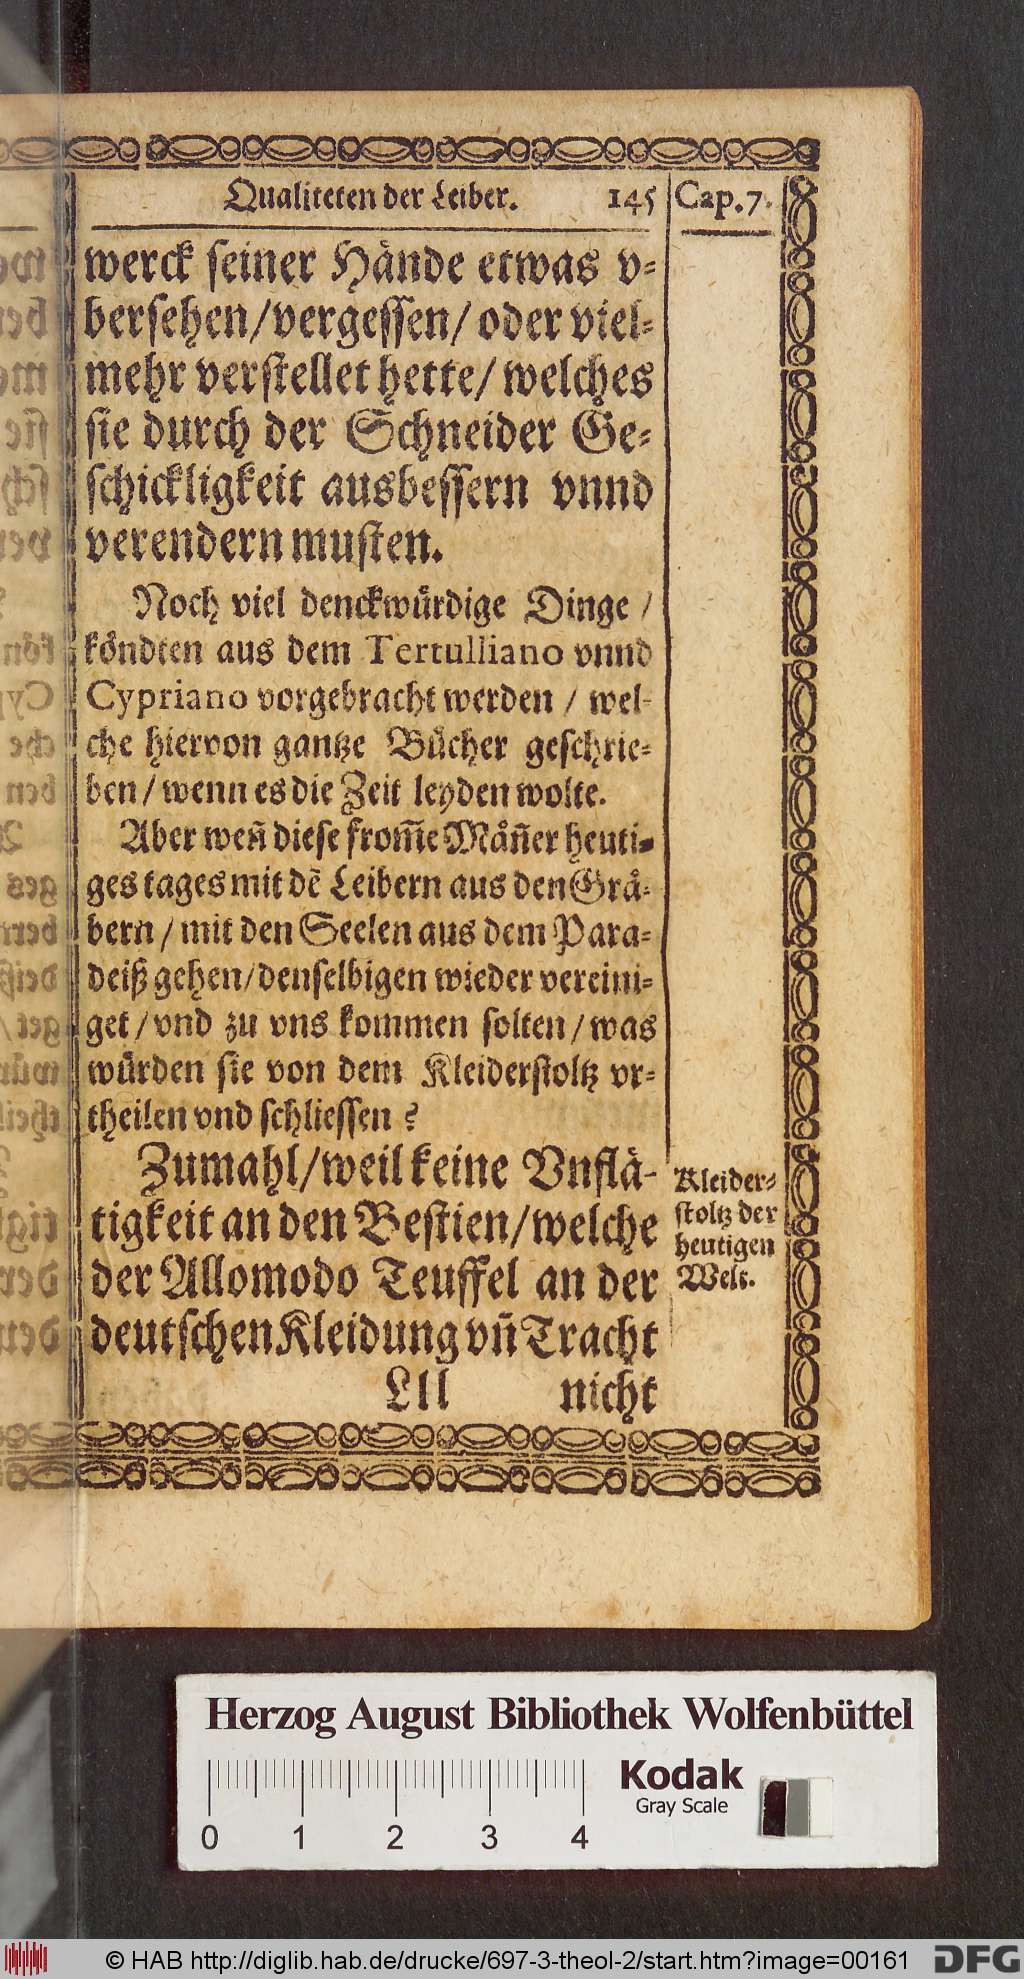 Qualiteten der Leiber. 145 Cap. 7.
werck seiner Hände etwas v-
bersehen/vergessen/ oder viel-
mehr verstellet hette/ welches
sie durch der Schneider Ge-
schickligkeit ausbessern vnnd
verendern musten.
Noch viel denckwürdige Dinge /
köndten aus dem Tertulliano vnnd
Cypriano vorgebracht werden / wel-
che hiervon gantze Bücher geschrie-
ben / wenn es die Zeit leyden wolte.
Aber weñ diese from̃e Mäñer heuti-
ges tages mit dẽ Leibern aus den Grä-
bern / mit den Seelen aus dem Para-
deiß gehen/denselbigen wieder vereini-
get / vnd zu vns kommen solten / was
würden sie von dem Kleiderstoltz vr-
theilen vnd schliessen ?
Zumahl/weil keine Vnflä-
tigkeit an den Bestien/welche
der Allomodo Teuffel an der
deutschen Kleidung vñ Tracht
Lll nicht
Kleider-
stoltz der
heutigen
Welt.
Herzog August Bibliothek Wolfenbüttel
Kodak
Gray Scale
0 1 2 3 4
© HAB http://diglib.hab.de/drucke/697-3-theol-2/start.htm?image=00161
DFG